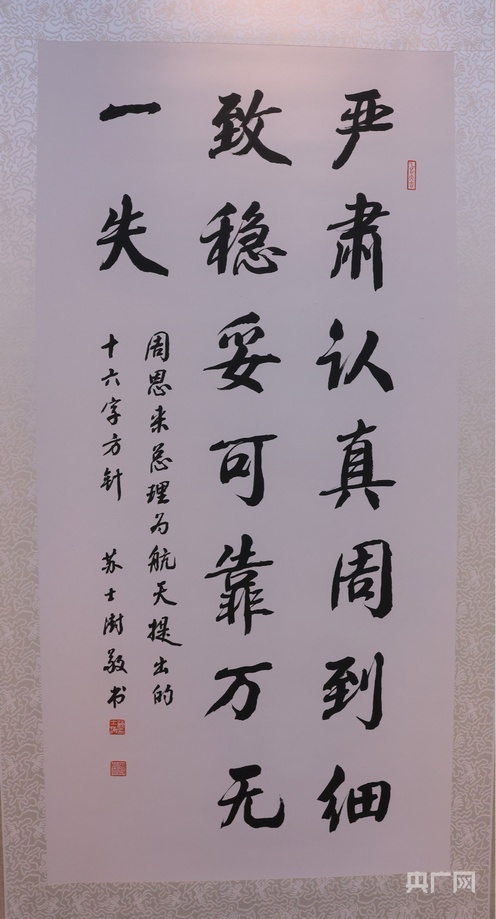 严肃认真周到细
致稳妥可靠万无
一失
周恩来总理为航天提出的
十六字方针 苏士澍敬书
央广网